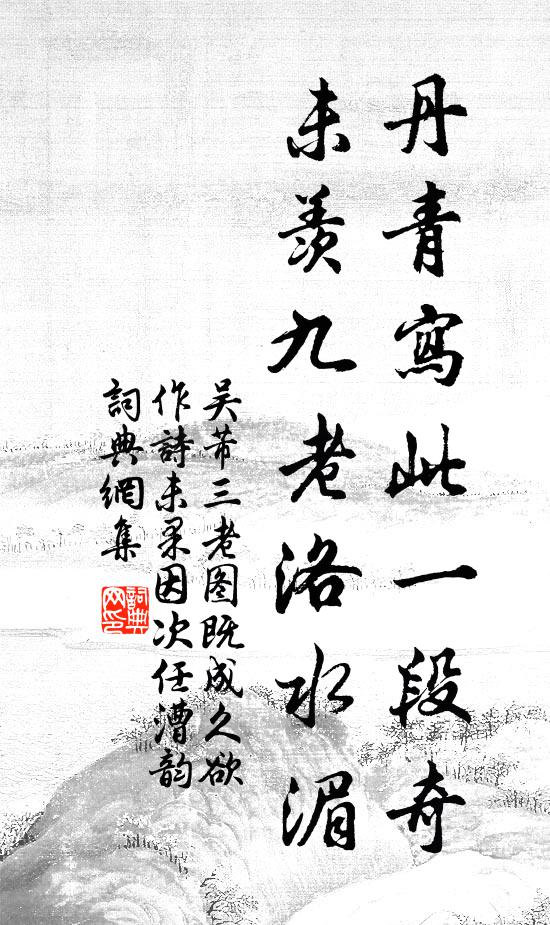 丹青寫此一段奇
未羨九老洛水湄
吴芾三老图既成久欲
作詩未果因次任漕韵
詞典網集
詞典
网印